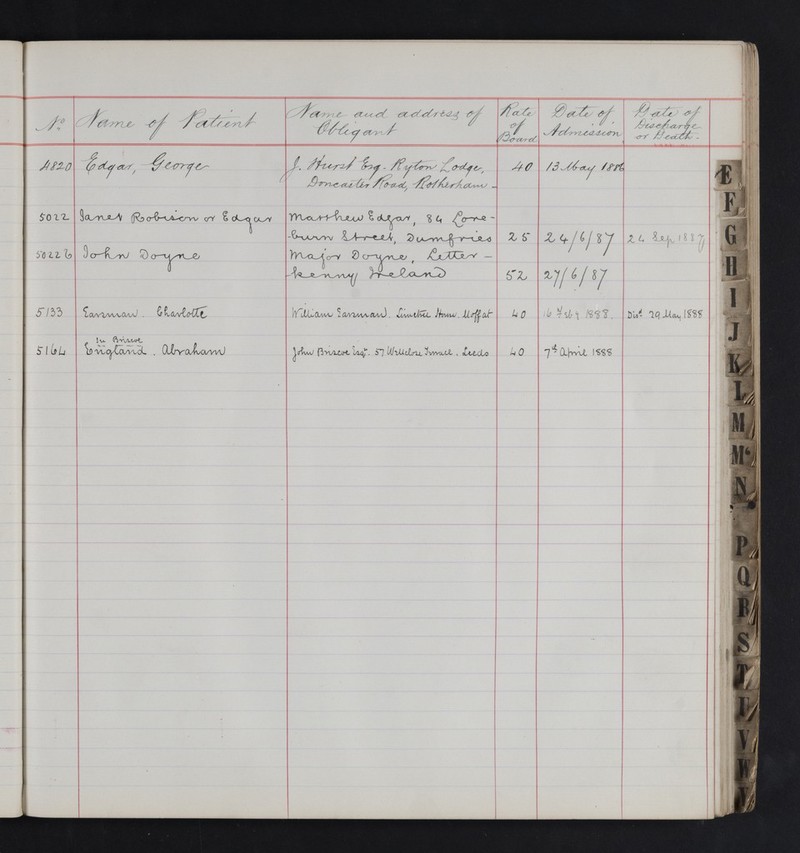 No. Name of Patient Name and address of Obligant Rate of Board Date of Admission Date of Discharge or Death.
4820 Edgar, George J. Hurst Esq. Ryton Lodge, 40 13 May 1886
Doncaster Road, Rotherham -
5022 Janet Robison or Edgar Matthew Edgar, 84 Lore-
burn Street, Dumfries 25 24/6/87 24 Sep 1887
John Doyne Major Doyne, Letter-
kenny Ireland 52 27/6/87
5133 Charlotte William Moffat 40 1888. Disd 29 May 1888
or Briscoe
5164 England. Abraham John Briscoe Esqr. 57 Leeds 40 7th April 1888
E
F
G
H
I
J
K
L
M
Mc
N
P
Q
R
S
T
U
V
W
Y